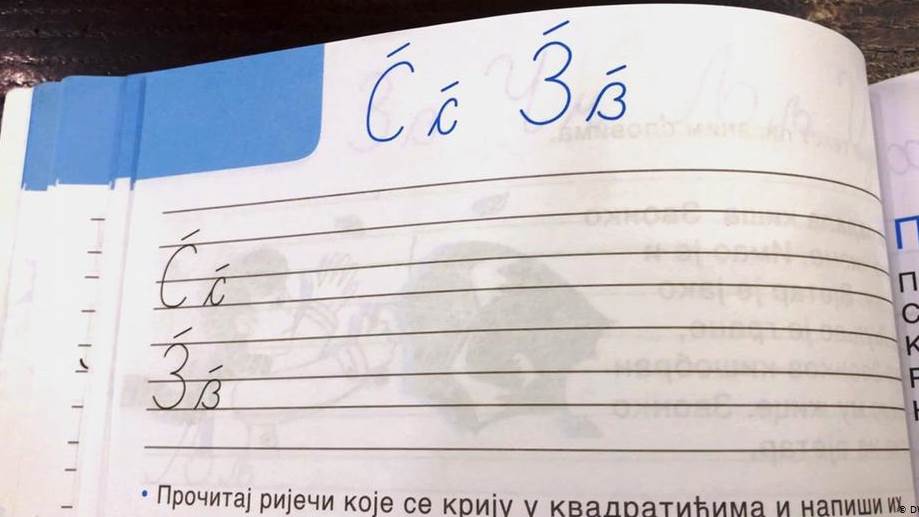 С́ с́ З́ з́
С́ с́
З́ з́
• Прочитај ријечи које се крију у квадратићима и напиши их